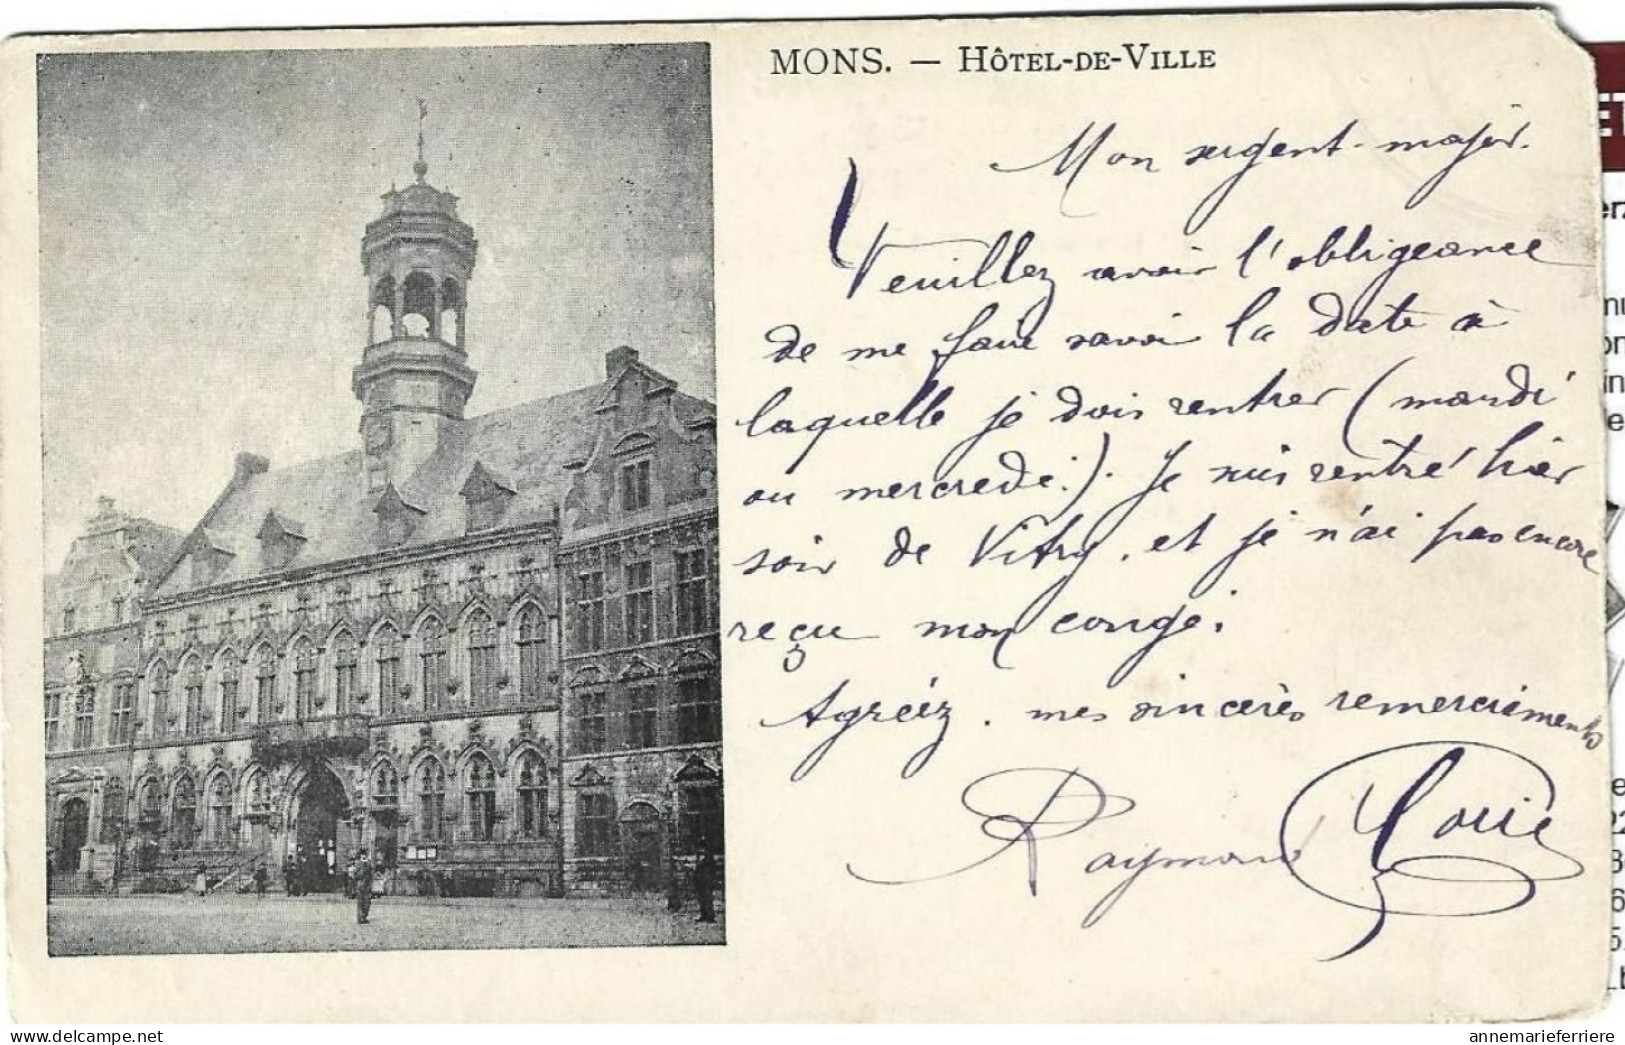 MONS. — HÔTEL-DE-VILLE
Mon sergent-major.
Veuillez avoir l'obligeance
de me faire savoir la date à
laquelle je dois rentrer (mardi
ou mercredi.). Je suis rentré hier
soir de Vitry, et je n'ai pas encore
reçu mon congé.
Agréez. mes sincères remerciements
Raymond
delcampe.net
annemarieferriere